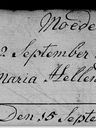 Moede
2 September
Maria Hellen
Den 15 Septe